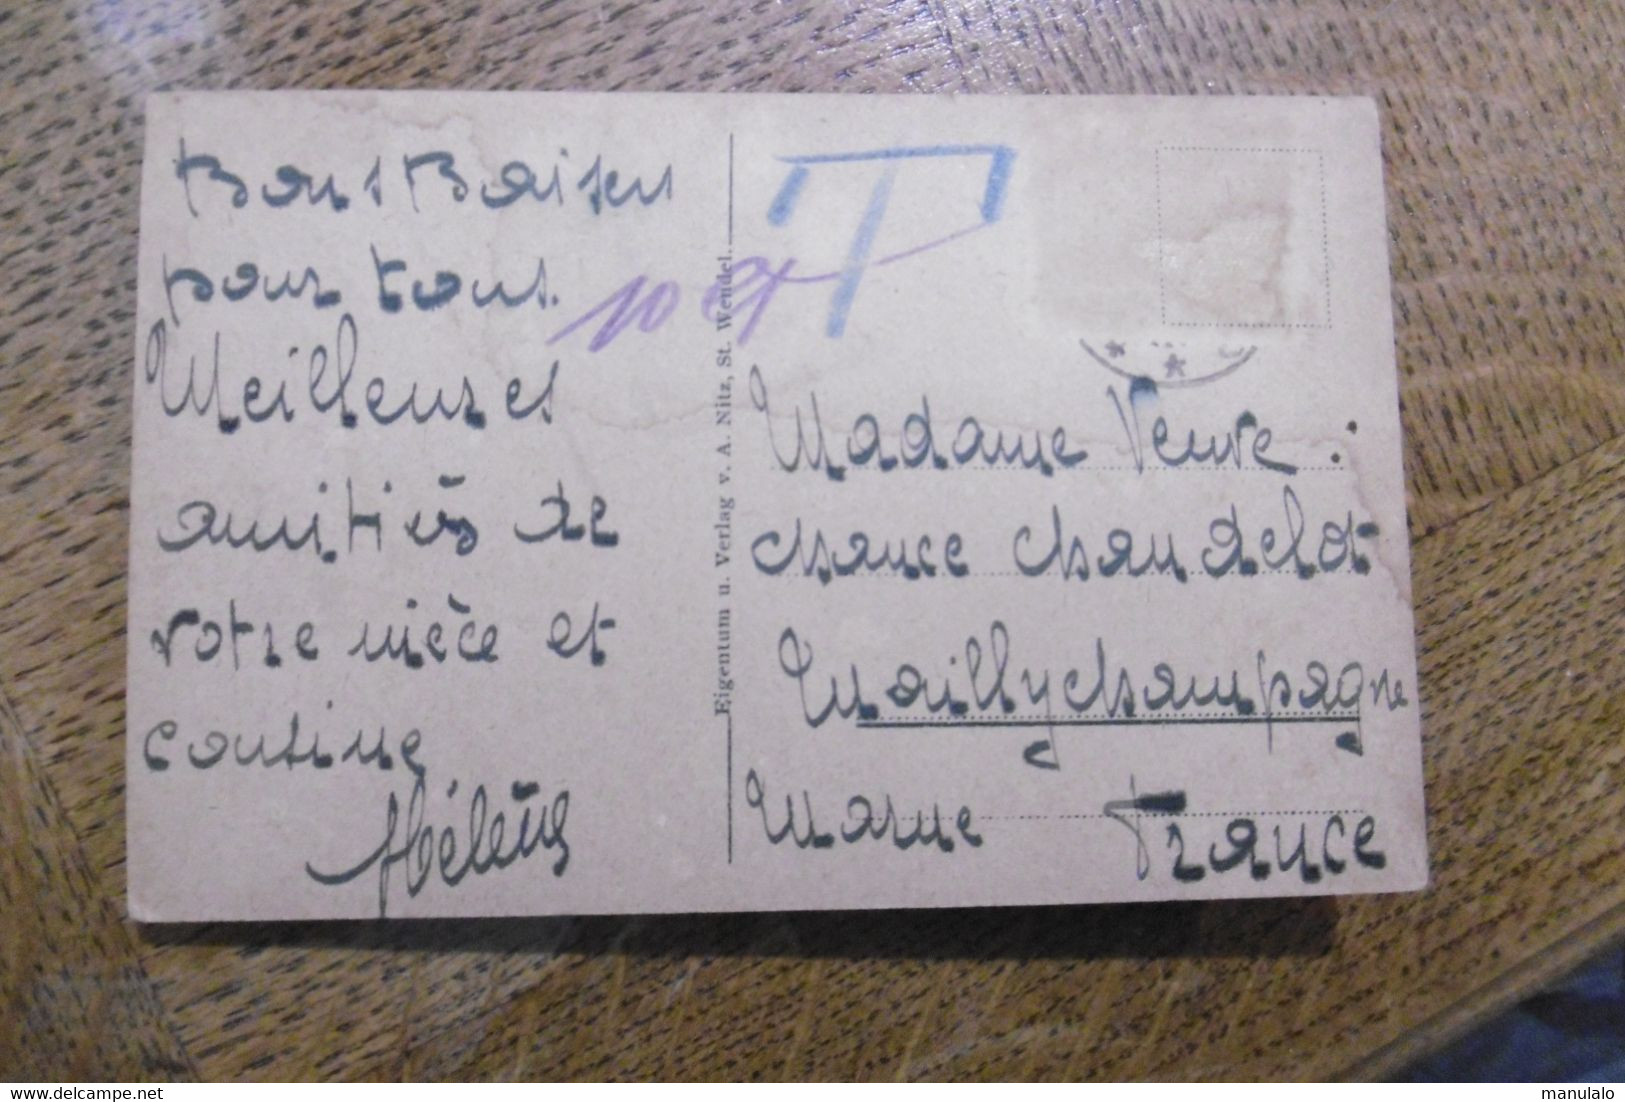 Bons Baisers
pour tous.
Meilleures
amitiés de
votre nièce et
cousine
Hélène
10 ct
T
Eigentum u. Verlag v. A. Nitz, St. Wendel.
Madame Veuve :
chance Chaudelot
Mailly champagne
Marne France
delcampe.net
manulalo